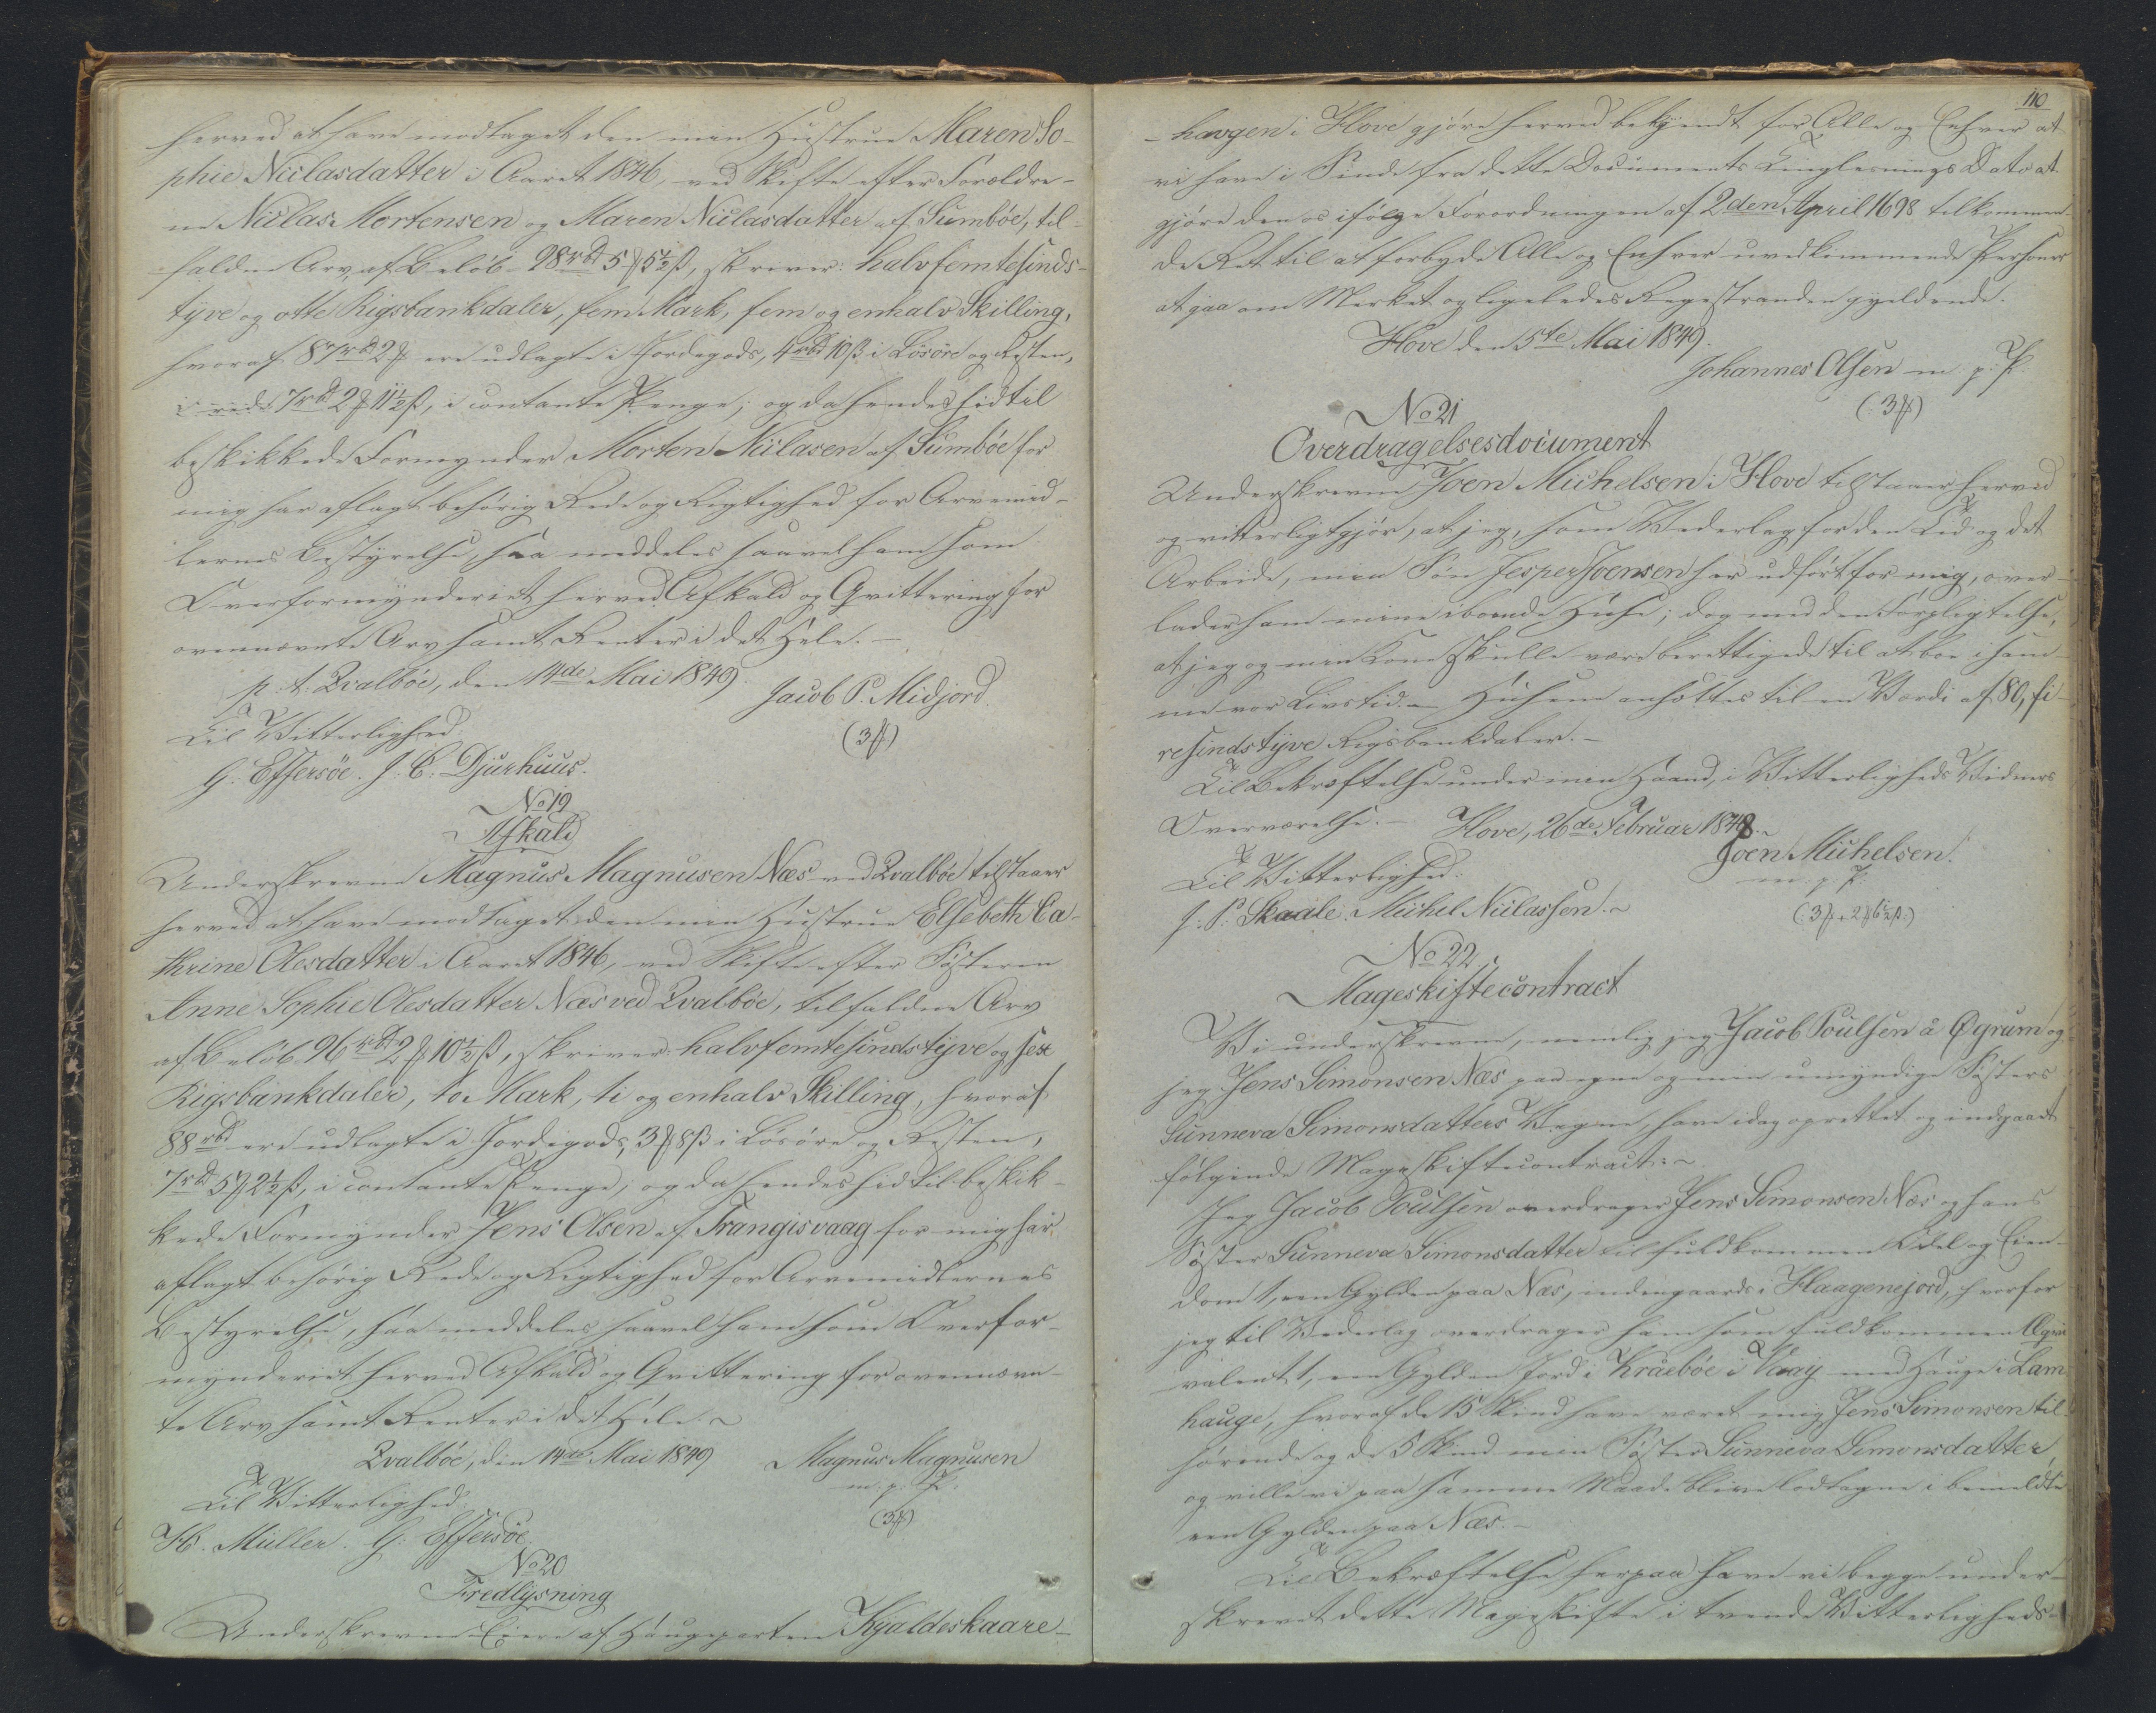 herved at have modtaget den min Hustrue Maren So-
phie Niclasdatter i Aaret 1846, ved Skifte efter Forældre-
ne Niclas Mortensen og Maren Niclasdatter af Sumböe, til-
falden Arv, af Belöb 98 rbd 5 ℳ 5½ ß, skriver: halvfemtesinds-
tyve og otte Rigsbankdaler, fem Mark, fem og enhalv Skilling,
hvoraf 87 rbd 2 ℳ ere udlagte i Jordegods, 4 rbd 10 ß i Lösöre og Resten,
7 rbd 2 ℳ 11½ ß, i contante Penge; og da hendes hidtil
beskikkede Formynder Morten Niclasen af Sumböe for
mig har aflagt behörig Rede og Rigtighed for Arvemid-
lernes Bestyrelse, saa meddeles saavel ham som
Overformynderiet herved Afkald og Qvittering for
ovennævnte Arv samt Renter i det Hele.-
p. t. Qvalböe, den 14de Mai 1849.
Jacob P. Midjord.
Til Vitterlighed:
(3 ℳ)
G. Effersöe. J. C. Djurhuus.
No 19
Afkald
Underskrevne Magnus Magnusen Næs ved Qvalböe tilstaaer
herved at have modtaget den min Hustrue Elsebeth Ca-
thrine Olesdatter i Aaret 1846, ved Skifte efter Sösteren
Anne Sophie Olesdatter Næs ved Qvalböe, tilfalden Arv
af Belöb 96 rbd 2 ℳ 10½ ß, skriver: halvfemtesindstyve og sex
Rigsbankdaler, to Mark, ti og enhalv Skilling, hvoraf
88 rbd ere udlagte i Jordegods, 3 ℳ 8 ß i Lösöre og Resten,
7 rbd 5 ℳ 2½ ß, i contante Penge; og da hendes hidtil beskik-
kede Formynder Jens Olsen af Trangisvaag for mig har
aflagt behörig Rede og Rigtighed for Arvemidlernes
Bestyrelse, saa meddeles saavel ham som Overfor-
mynderiet herved Afkald og Qvittering for ovennævn-
te Arv samt Renter i det Hele.~
Qvalböe, den 14de Mai 1849
Magnus Magnusen
m. p. P.
Til Vitterlighed:
(3 ℳ)
H. Müller. G. Effersöe.
No 20
Fredlysning
Underskrevne Eiere af Haugeparten Kjaldeskaare-
110
-havgen i Hove gjöre herved bekjendt for Alle og Enhver at
vi have i Sinde fra dette Documents Tinglæsnings Dato at
gjöre den os ifölge Forordningen af 2den April 1698 tilkommen-
de Ret til at forbyde Alle og Enhver uvedkommende Personer
at gaa om Market og ligeledes Ragestranden gjeldende.
Hove den 5te Mai 1849.
Johannes Olsen m. p. P.
(: 3 ℳ)
No 21
Overdragelsesdocument
Underskrevne Joen Michelsen i Hove tilstaaer herved
og vitterligtgjör, at jeg, som Vederlag for den Tid og det
Arbeide, min Sön Jesper Joensen har udfört for mig, over-
lader ham mine iboende Huse; dog med den Forpligtelse,
at jeg og min Kone skulle være berettigede til at boe i sam-
me vor Livstid.- Husene ansættes til en Værdi af 80, fi-
resindstyve Rigsbankdaler.-
Til Bekræftelse under min Haand, i Vitterligheds Vidners
Overværelse.- Hove, 26de Februar 1848.~
Joen Michelsen.
Til Vitterlighed:
m. p. P.
J. P. Skaale. Michel Niclassen.~
(: 3 ℳ + 2 ℳ 6½ ß.)
No 22.
Mageskiftecontract
Vi underskrevne, nemlig jeg Jacob Poulsen á Ögrum og
jeg Jens Simonsen Næs paa egne og min umyndige Sösters
Sunneva Simonsdatters Vegne, have idag oprettet og indgaaet
fölgende Mageskiftecontract:~
Jeg Jacob Poulsen overdrager Jens Simonsen Næs og hans
Söster Sunneva Simonsdatter til fuldkommen Odel og Eien-
dom 1, een Gylden paa Næs, indengaards i Haagenejord, hvorfor
jeg til Vederlag overdrager ham som fuldkommen Æqvi-
valent 1, een Gylden Jord i Kraeböe i Vaag med Hauge i Lam-
hauge, hvoraf de 15 Skind have været mig Jens Simonsen til-
hörende og de 5 Skind min Söster Sunneva Simonsdatter,
og ville vi paa samme Maade blive lodtagne i bemeldte
een Gylden paa Næs.-
Til Bekræftelse herpaa have vi begge under-
skrevet dette Mageskifte i tvende Vitterligheds-